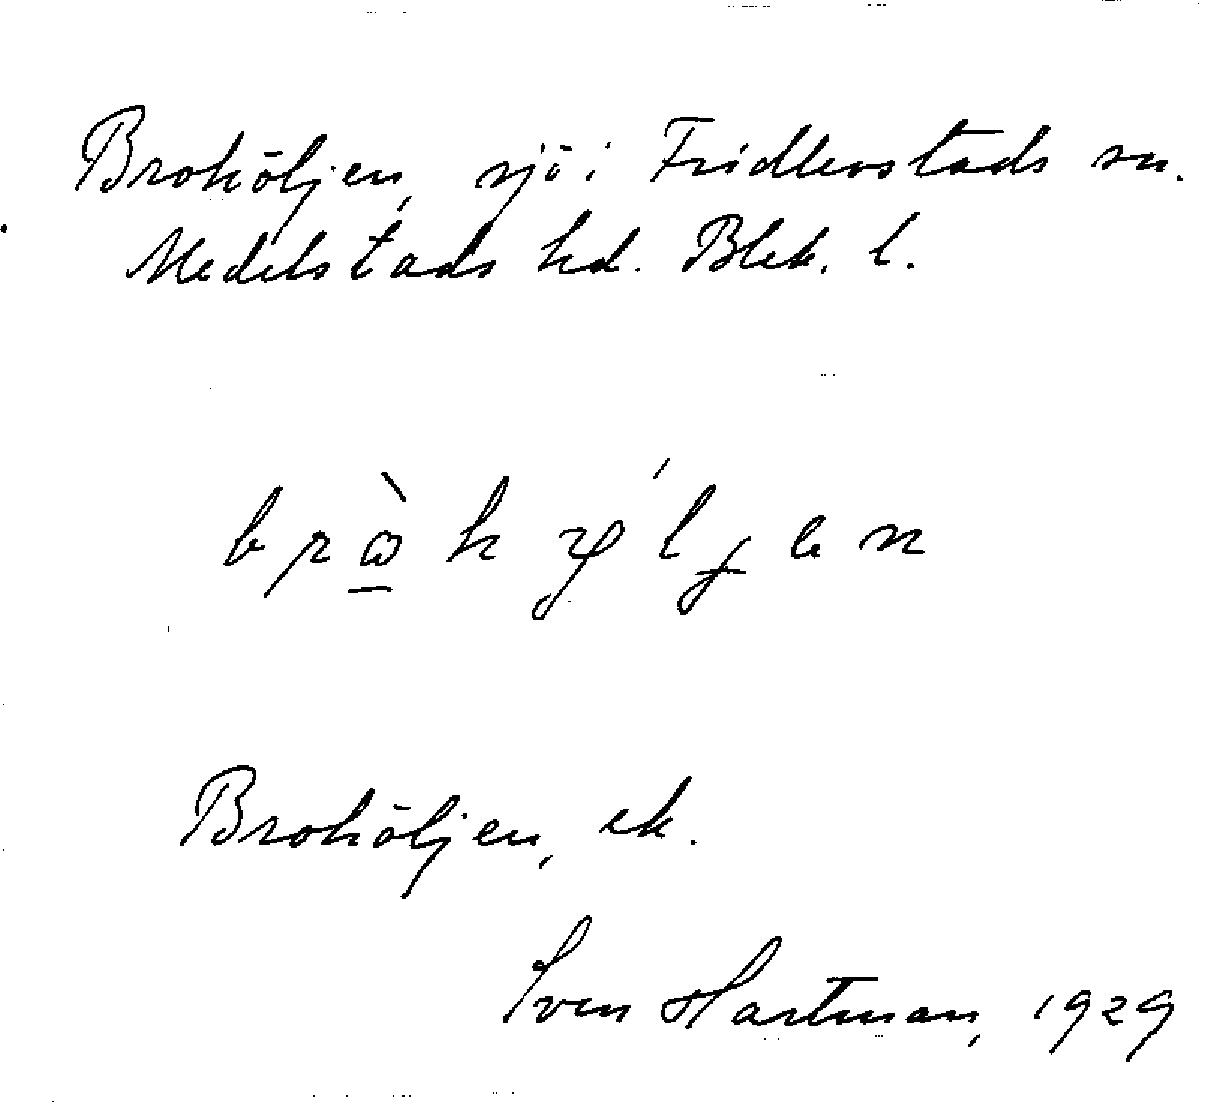 Brohöljen, sjö i Fridlevstads sn.
Medelstads hd. Blek. l.
Brohöljen, ek.
Sven Hartman, 1929